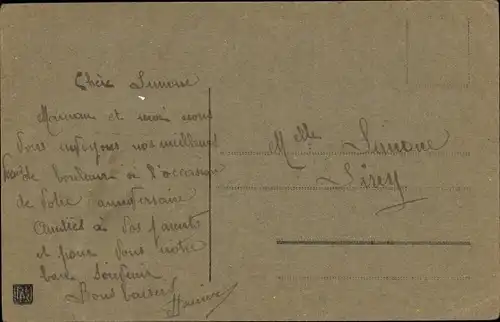 Chère Simone
Maman et moi nous
vous envoyons nos meilleurs
de bonheur à l'occasion
de votre anniversaire
Amitiés à vos parents
et pour vous notre
bon souvenir
Bons baisers
Melle Simone
Sirey